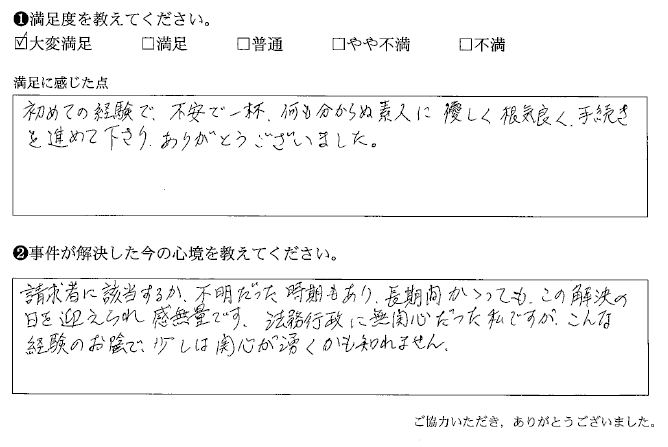 ❶満足度を教えてください。
☑大変満足 □満足 □普通 □やや不満 □不満
満足に感じた点
初めての経験で、不安で一杯、何も分からぬ素人に 優しく 根気良く、手続き
を進めて下さり、ありがとうございました。
❷事件が解決した今の心境を教えてください。
請求者に該当するか、不明だった 時期もあり、長期間かかっても、この解決の
日を迎えられ 感無量です、法務行政に無関心だった私ですが、こんな
経験のお陰で、少しは関心が湧くかも知れません。
ご協力いただき，ありがとうございました。